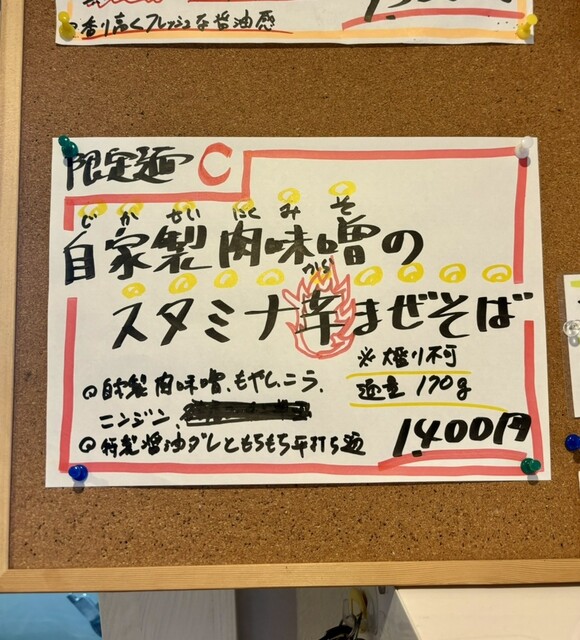 香り高くフレッシュな醤油感
限定麺 C
じかせいにくみそ
自家製肉味噌の
から
スタミナ辛まぜそば
※大盛り不可
麺量 170g
◎自家製肉味噌、もやし、ニラ、
ニンジン、
◎特製醤油ダレともちもち平打ち麺
1,400円